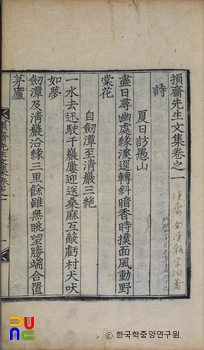 損齋先生文集卷之一
詩
夏日訪愚山
盡日尋幽處緣溪邐轉斜暗香時撲面風動野
棠花
自劒潭至淸巖三絶
一水去迅駛千巖屢迎送桑麻互蔽虧村犬吠
如夢
劒潭及淸巖沿緣三里餘雖無眺望勝端合置
茅廬
한국학중앙연구원